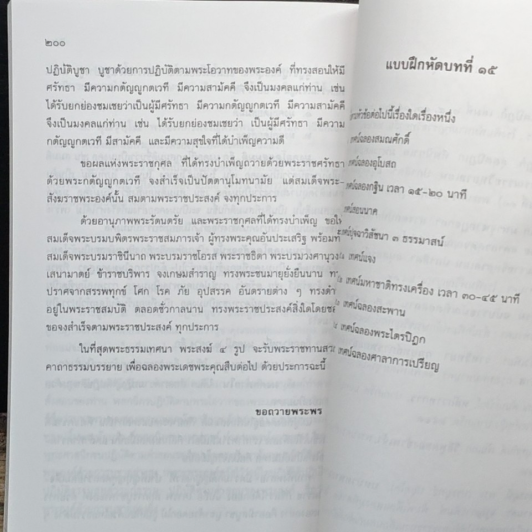 ๒๐๐
ปฏิบัติบูชา บูชาด้วยการปฏิบัติตามพระโอวาทของพระองค์ ที่ทรงสอนให้มี
ศรัทธา มีความกตัญญูกตเวที มีความสามัคคี จึงเป็นมงคลแก่ท่าน เช่น
ได้รับยกย่องชมเชยว่าเป็นผู้มีศรัทธา มีความกตัญญูกตเวที มีความสามัคคี
จึงเป็นมงคลแก่ท่าน เช่น ได้รับยกย่องชมเชยว่า เป็นผู้มีศรัทธา มีความ
กตัญญูกตเวที มีสามัคคี และมีความสุขใจที่ได้บำเพ็ญความดี
ขอผลแห่งพระราชกุศล ที่ได้ทรงบำเพ็ญถวายด้วยพระราชศรัทธา
ด้วยพระกตัญญูกตเวที จงสำเร็จเป็นปัตตานุโมทนามัย แด่สมเด็จพระ-
สังฆราชพระองค์นั้น สมตามพระราชประสงค์ จงทุกประการ
ด้วยอานุภาพพระรัตนตรัย และพระราชกุศลที่ได้ทรงบำเพ็ญ ขอให้
สมเด็จพระบรมบพิตรพระราชสมภารเจ้า ผู้ทรงพระคุณอันประเสริฐ พร้อมทั้
สมเด็จพระบรมราชินีนาถ พระบรมราชโอรส พระราชธิดา พระบรมวงศานุวงศ์
เสนามาตย์ ข้าราชบริพาร จงเกษมสำราญ ทรงพระชนมายุยั่งยืนนาน
ปราศจากสรรพทุกข์ โศก โรค ภัย อุปสรรค อันตรายต่าง ๆ ทรงดำ
อยู่ในพระราชสมบัติ ตลอดชั่วกาลนาน ทรงพระราชประสงค์สิ่งใดโดยช
ขอจงสำเร็จตามพระราชประสงค์ ทุกประการ
ในที่สุดพระธรรมเทศนา พระสงฆ์ ๔ รูป จะรับพระราชทานสว
คาถาธรรมบรรยาย เพื่อฉลองพระเดชพระคุณสืบต่อไป ด้วยประการฉะนี้
ขอถวายพระพร
แบบฝึกหัดบทที่ ๑๕
หัวข้อต่อไปนี้เรื่องใดเรื่องหนึ่ง
เทศน์ฉลองสมณศักดิ์
เทศน์ฉลองอุโบสถ
เทศน์ฉลองกฐิน เวลา ๑๕-๒๐ นาที
เทศน์สอนนาค
ปุจฉาวิสัชนา ๓ ธรรมาสน์
เทศน์แจง
เทศน์มหาชาติทรงเครื่อง เวลา ๓๐-๔๕ นาที
เทศน์ฉลองสะพาน
เทศน์ฉลองพระไตรปิฎก
เทศน์ฉลองศาลาการเปรียญ